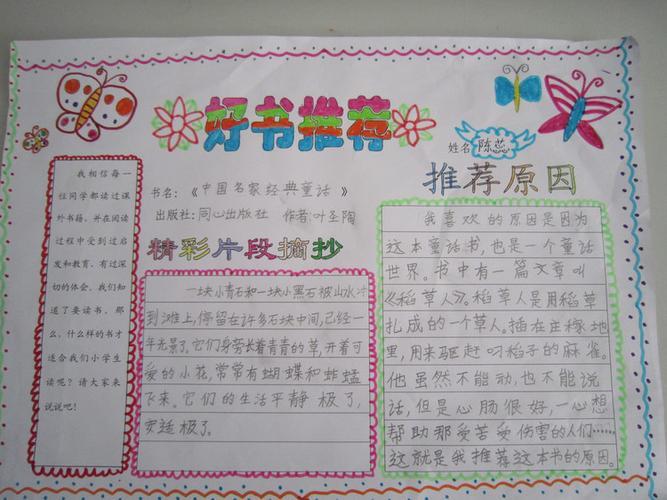 好书推荐
姓名 陈蕊
我相信每一
位同学都读过课
外书籍，并在阅读
过程中受到过启
发和教育，有过深
切的体会。我们知
道了要读书，那
么，什么样的书才
适合我们小学生
读呢？请大家来
说说吧！
书名：《中国名家经典童话》
出版社：同心出版社 作者：叶圣陶
精彩片段摘抄
一块小青石和一块小黑石被山水冲
到滩上，停留在许多石块中间，已经一
年光景了。它们身旁长着青青的草，开着可
爱的小花，常常有蝴蝶和蚱蜢
飞来。它们的生活平静极了，
安适极了。
推荐原因
我喜欢的原因是因为
这本童话书，也是一个童话
世界。书中有一篇文章叫
《稻草人》。稻草人是用稻草
扎成的一个草人。插在庄稼地
里，用来驱赶叼稻子的麻雀。
他虽然不能动，也不能说
话，但是心肠很好，一心想
帮助那受苦受伤害的人们……
这就是我推荐这本书的原因。